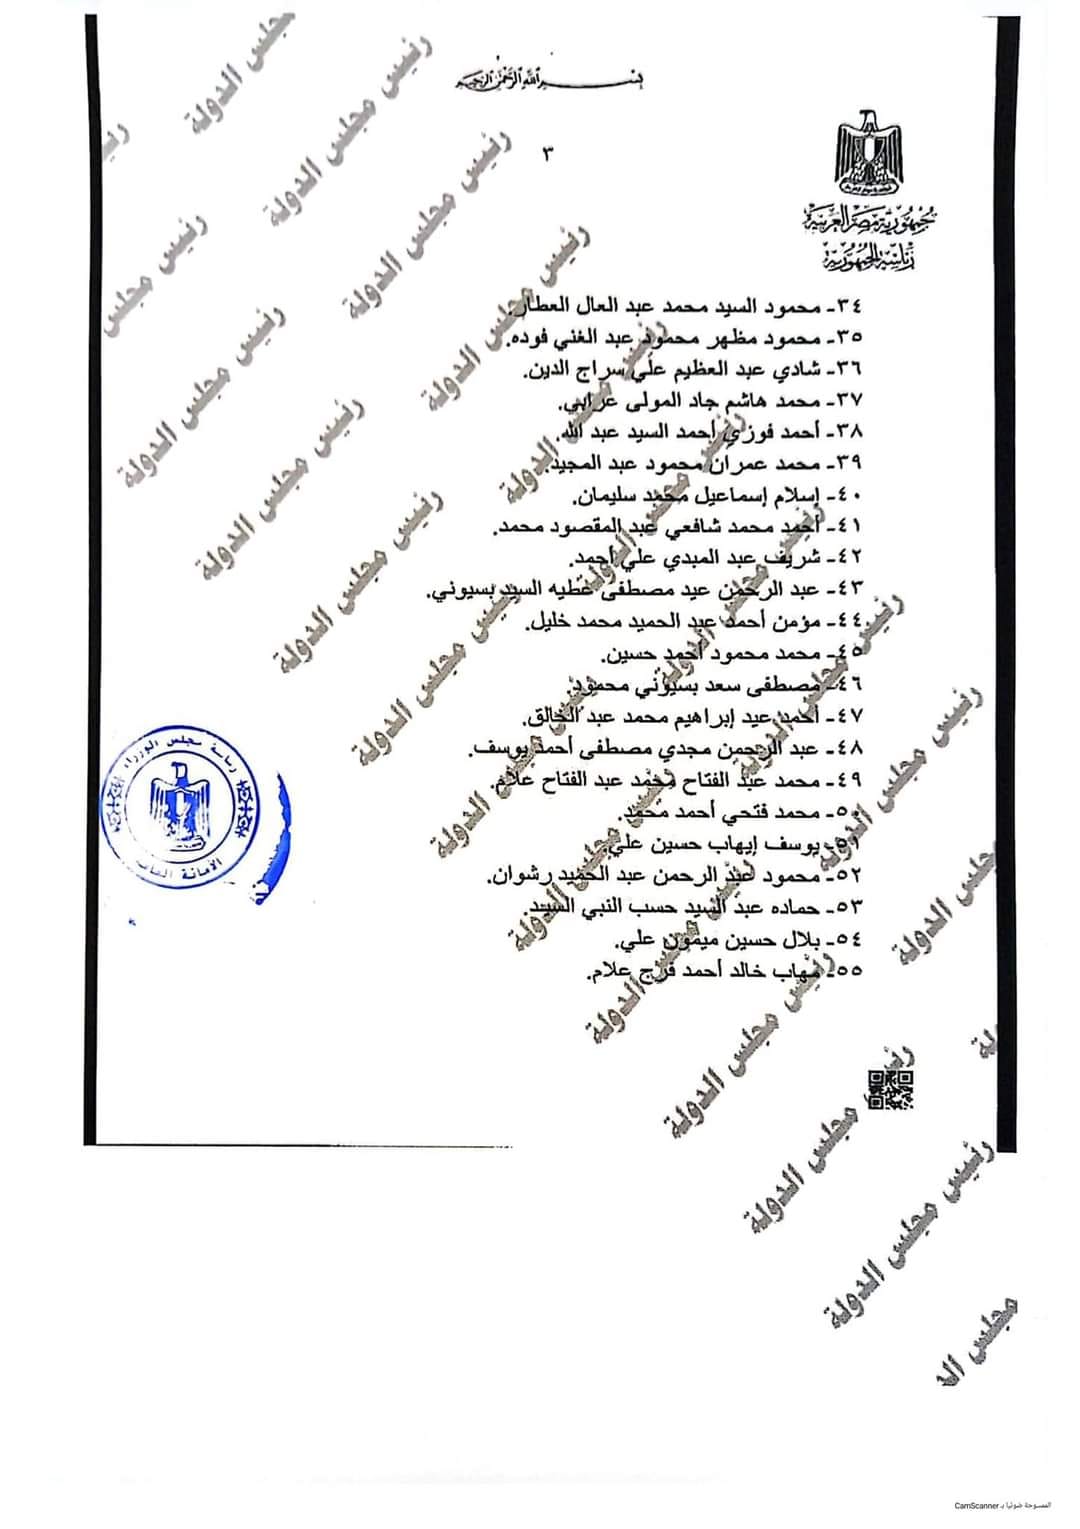 بسم الله الرحمن الرحيم
٣
جمهورية مصر العربية
رئاسة الجمهورية
٣٤- محمود السيد محمد عبد العال العطار.
٣٥- محمود مظهر محمود عبد الغني فوده.
٣٦- شادي عبد العظيم علي سراج الدين.
٣٧- محمد هاشم جاد المولى عرابي.
٣٨- أحمد فوزي أحمد السيد عبد الله.
٣٩- محمد عمران محمود عبد المجيد.
٤٠- إسلام إسماعيل محمد سليمان.
٤١- أحمد محمد شافعي عبد المقصود محمد.
٤٢- شريف عبد المبدي علي أحمد.
٤٣- عبد الرحمن عيد مصطفى عطيه السيد بسيوني.
٤٤- مؤمن أحمد عبد الحميد محمد خليل.
٤٥- محمد محمود أحمد حسين.
٤٦- مصطفى سعد بسيوني محمود.
٤٧- أحمد عيد إبراهيم محمد عبد الخالق.
٤٨- عبد الرحمن مجدي مصطفى أحمد يوسف.
٤٩- محمد عبد الفتاح محمد عبد الفتاح علام.
٥٠- محمد فتحي أحمد محمد.
٥١- يوسف إيهاب حسين علي.
٥٢- محمود عبد الرحمن عبد الحميد رشوان.
٥٣- حماده عبد السيد حسب النبي السيد
٥٤- بلال حسين ميمون علي.
٥٥- مهاب خالد أحمد فرج علام.
رئاسة مجلس الوزراء
الأمانة العامة
رئيس مجلس الدولة
الممسوحة ضوئيا بـ CamScanner